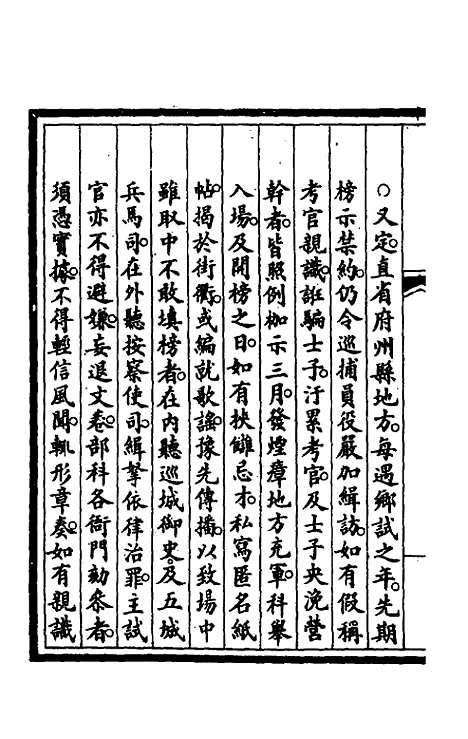 ○又定。直省府州縣地方。每遇鄉試之年。先期
榜示禁約。仍令巡捕員役嚴加緝訪。如有假稱
考官親識。誆騙士子。汙累考官。及士子央浼營
幹者。皆照例枷示三月。發煙瘴地方充軍。科舉
入場。及開榜之日。如有挾讎忌才。私寫匿名紙
帖。揭於街衢。或編就歌謠。豫先傳播。以致場中
雖取中不敢填榜者。在內聽巡城御史。及五城
兵馬司。在外聽按察使司。緝拏依律治罪。主試
官亦不得避嫌。妄退文卷。部科各衙門劾參者。
須憑實據。不得輕信風聞。輒形章奏。如有親識